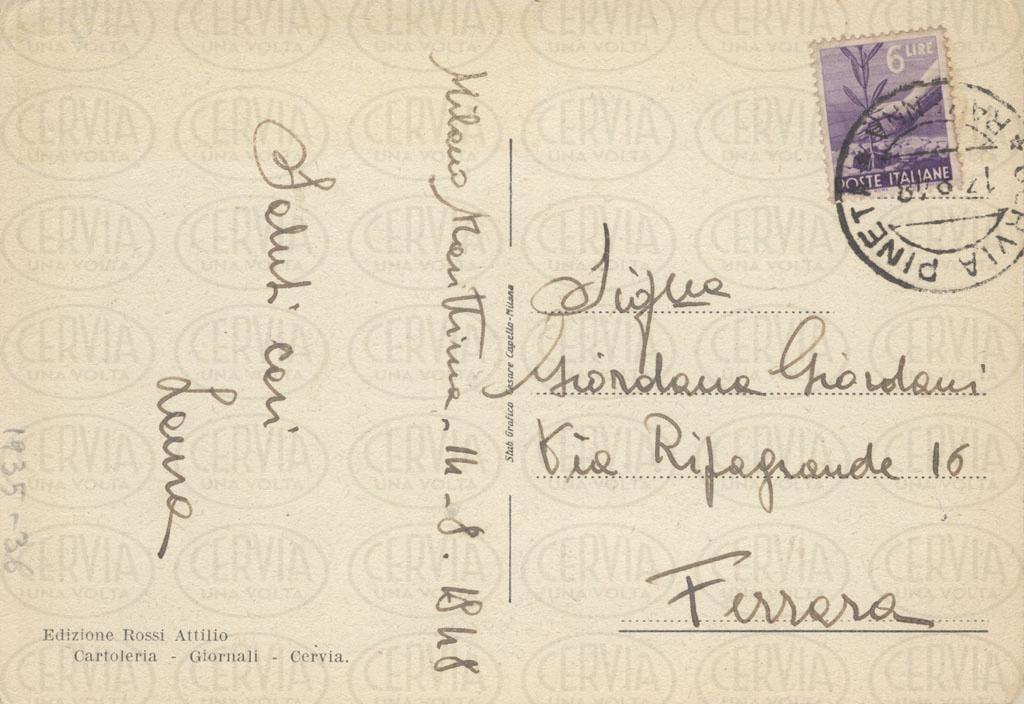 Milano Marittima, 14-8.1948
Saluti cari
Laura
1935-36
Edizione Rossi Attilio
Cartoleria - Giornali - Cervia.
Stab. Grafico Cesare Capello-Milano
6 LIRE
POSTE ITALIANE
CERVIA PINETA
RAVENNA
Sig.na
Giordana Giordani
Via Ripagrande 16
Ferrara
CERVIA
UNA VOLTA